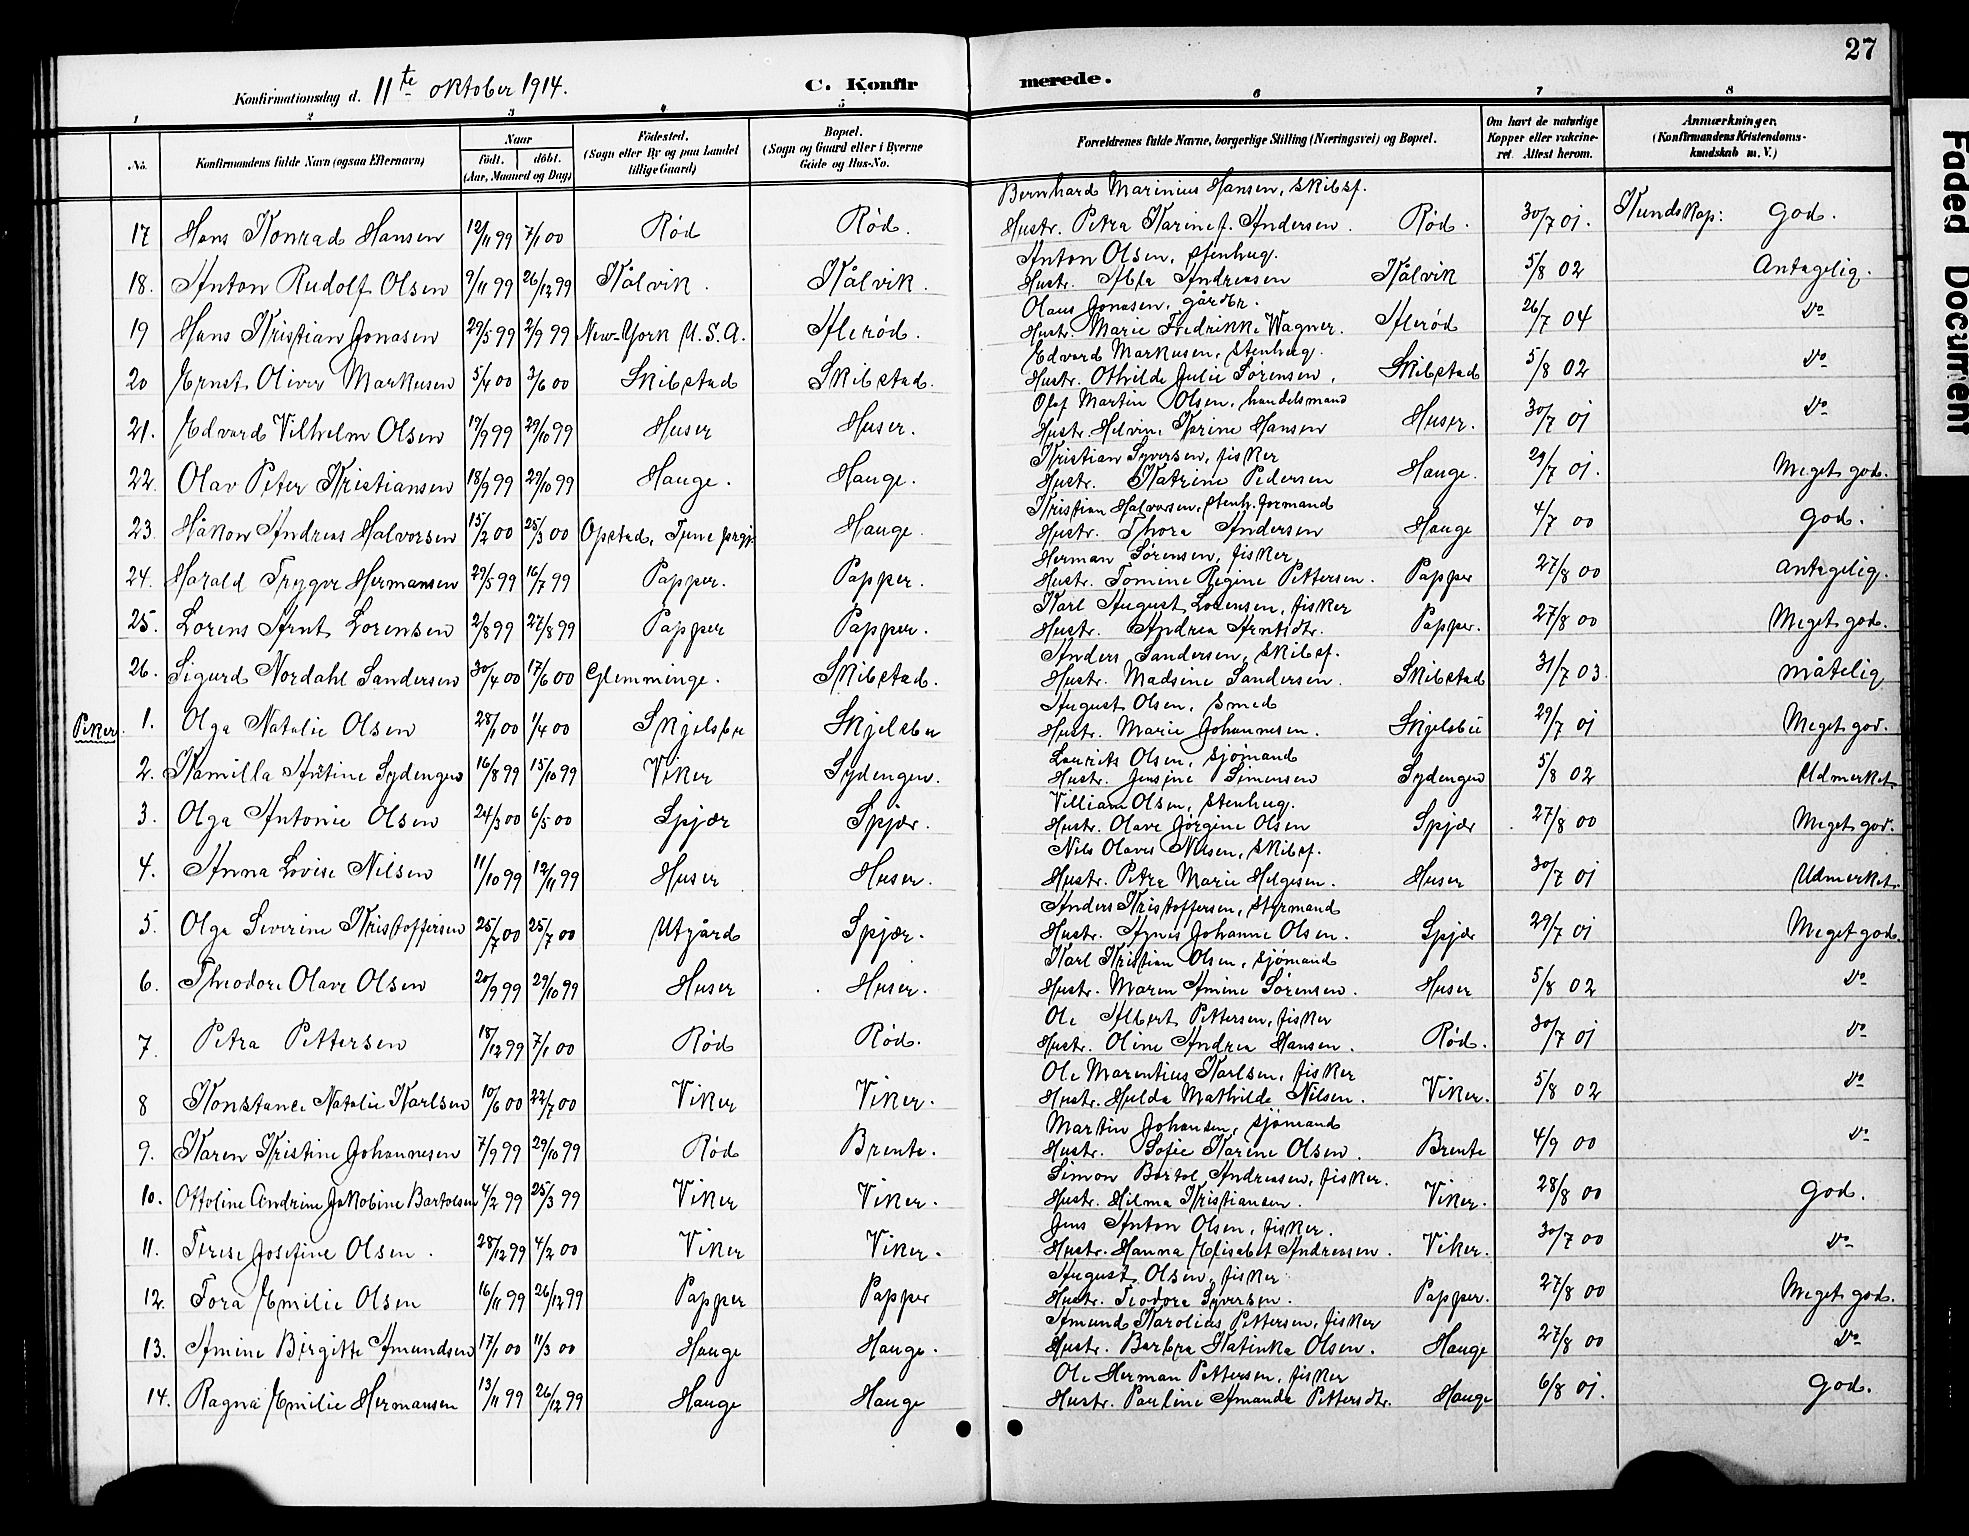 27
Konfirmationsdag d. 11te oktober 1914.
C. Konfirmerede.
1 2 3 4 5 6 7 8
No. Konfirmandens fulde Navn (ogsaa Efternavn) Naar født. døbt. (Aar, Maaned og Dag) Fødested. (Sogn eller By og paa Landet tillige Gaard) Bopæl. (Sogn og Gaard eller i Byerne Gade og Hus-No. Forældrenes fulde Navne, borgerlige Stilling (Næringsvei) og Bopæl. Om havt de naturlige Kopper eller vakcineret. Attest herom. Anmærkninger. (Konfirmandens Kristendomskundskab m. V.)
Bernhard Marinius Hansen, skibsf.
17 Hans Konrad Hansen 12/11 99 7/1 00 Rød Rød. Hustr. Petra Karine f. Andersen. Rød. 30/7 01. Kundskap: God.
Anton Olsen, stenhug.
18. Anton Rudolf Olsen 9/11 99 26/12 99 Kålvik. Kålvik. Hustr. Andreasen Kålvik 5/8 02 Antagelig.
Olaus Jonasen, gårdbr.
19 Hans Kristian Jonasen 29/5 99 2/9 99 New-York U.S.A. Hlerød. Hustr. Marie Fredrikke Wagner. Hlerød 26/7 04 Do
Edvard Markusen, stenhug.
20 Ernst Oliver Markusen 5/4 00 3/6 00 Skibstad Skibstad. Hustr. Othilde Julie Sørensen. Skibstad 5/8 02 Do
Olaf Martin Olsen, handelsmand
21. Edvard Vilhelm Olsen 17/9 99 29/10 99 Huser Huser. Hustr. Helvine Karine Hansen Huser. 30/7 01 Do
Kristian Syversen, fisker
22. Olav Peter Kristiansen 18/9 99 29/10 99 Hauge. Hauge. Hustr. Katrine Pedersen Hauge. 29/7 01. Meget god.
Kristian Halvorsen, stenh. formand
23. Håkon Andreas Halvorsen 15/2 00 25/3 00 Opstad, Tune Hauge. Hustr. Thora Andersen Hauge 4/7 00 God.
Herman Sørensen, fisker
24. Harald Trygve Hermansen 29/5 99 16/7 99 Papper. Papper. Hustr. Tomine Regine Pettersen. Papper 27/8 00 antagelig.
Karl August Lorensen, fisker
25. Lorens Arnt Lorensen 2/8 99 27/8 99 Papper Papper. Hustr. Andrea Arntsdtr. Papper. 27/8 00 Meget god.
Anders Sandersen, skibsf.
26. Sigurd Nordahl Sandersen 30/4 00 17/6 00 Glemminge. Skibstad. Hustr. Madsine Sandersen. Skibstad 31/7 03. måtelig
August Olsen, smed
Piker. 1. Olga Natalie Olsen 28/1 00 1/4 00 Skjelsbu Skjelsbu Hustr. Marie Johannesen. Skjelsbu 29/7 01 Meget god.
Laurits Olsen, sjømand
2. Kamilla Sydengen 16/8 99 15/10 99 Viker Sydengen. Hustr. Jensine Simensen Sydengen 5/8 02 Udmerket
Villiam Olsen, stenhug.
3. Olga Antonie Olsen 24/3 00 6/5 00 Spjær Spjær. Hustr. Olave Jørgine Olsen Spjær 27/8 00 Meget god.
Nils Olaves Nilsen, skibsf.
4. Anna Lovise Nilsen 11/10 99 12/11 99 Huser Huser. Hustr. Petra Marie Helgesen. Huser 30/7 01 Udmerket.
Anders Kristoffersen, styrmand
5. Olga Severine Kristoffersen 25/7 00 25/7 00 Utgård Spjær. Hustr. Agnes Johanne Olsen. Spjær 29/7 01 Meget god.
Karl Kristian Olsen, sjømand
6. Theodore Olave Olsen 20/9 99 29/10 99 Huser Huser. Hustr. Maren Amine Sørensen. Huser 5/8 02 Do
Ole Albert Pettersen, fisker
7. Petra Pettersen 18/12 99 7/1 00 Rød Rød. Hustr. Oline Andrea Hansen. Rød. 30/7 01 Do
Ole Marentius Karlsen, fisker
8 Konstance Natalie Karlsen 10/6 00 22/7 00 Viker Viker. Hustr. Hulda Mathilde Nilsen. Viker. 5/8 02 Do
Martin Johansen, sjømand
9. Karen Kristine Johannesen 7/9 99 29/10 99 Rød Brente. Hustr. Sofie Karine Olsen. Brente 4/9 00 Do
Simon Bertol Andreasen, fisker.
10. Ottoline Andrine Jakobine Bartolsen 4/2 99 25/3 99 Viker Viker. Hustr. Hilma Kristiansen. Viker. 28/8 00 God.
Jens Anton Olsen, fisker.
11. Terese Josefine Olsen. 28/12 99 4/2 00 Viker Viker. Hustr. Hanna Elisabet Andreasen. Viker. 30/7 00 Do
August Olsen, fisker
12. Tora Emilie Olsen 16/11 99 26/12 99 Papper Papper Hustr. Teodora Syversen. Papper. 27/8 00 Meget god.
Amund Karolius Pettersen, fisker
13. Amine Birgitte Amundsen 17/1 00 11/3 00 Hauge Hauge. Hustr. Barbra Katinka Olsen. Hauge 27/8 00 Do
Ole Herman Pettersen, fisker
14. Ragna Emilie Hermansen 13/11 99 26/12 99 Hauge Hauge Hustr. Pauline Amanda Pettersdtr. Hauge 6/8 01. God.
Faded Document